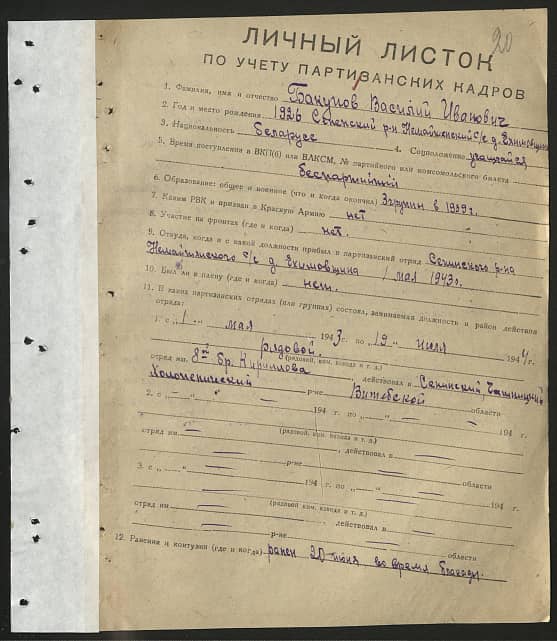 20
ЛИЧНЫЙ ЛИСТОК
ПО УЧЕТУ ПАРТИЗАНСКИХ КАДРОВ
1. Фамилия, имя и отчество Бакунов Василий Иванович
2. Год и место рождения 1926 Сенненский р-н Немойтянский с/с д. Екимовщина
3. Национальность Беларусс 4. Соцположение учащийся
5. Время поступления в ВКП(б) или ВЛКСМ, № партийного или комсомольского билета
беспартийный
6. Образование: общее и военное (что и когда окончил) 3 группы в 1939 г.
7. Каким РВК и призван в Красную Армию нет
8. Участие на фронтах (где и когда) нет.
9. Откуда, когда и с какой должности прибыл в партизанский отряд Сенинского р-на
Немойтянского с/с д. Екимовщина 1 мая 1943 г.
10. Был ли в плену (где и когда) нет.
11. В каких партизанских отрядах (или группах) состоял, занимаемая должность и район действия
отряда:
1. с „ 1 “ мая 1943 г. по „ 12 “ июля 1944 г.
рядовой.
(рядовой, ком. взвода и т. д.)
отряд им. 8й бр. Кириллова, действовал в Сенинский, Чашницкий
Холопенический р-не Витебской области
2. с „ “ 194 г. по „ “ 194 г.
(рядовой, ком. взвода и т. д.)
отряд им , действовал в
р-не области
3. с „ “ 194 г. по „ “ 194 г.
(рядовой ком. взвода и т. д.)
отряд им , действовал в
р-не области
12. Ранения и контузии (где и когда) ранен 20 июня во время блокады.